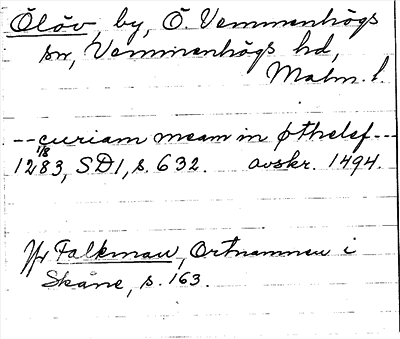 Ölöv, by, Ö. Vemmenhögs
sn, Vemmenhögs hd,
Malm. l.
-- curiam meam in øthelef --
1/8
1283, SD1, s. 632. avskr. 1494.
Jfr Falkman, Ortnamnen i
Skåne, s. 163.